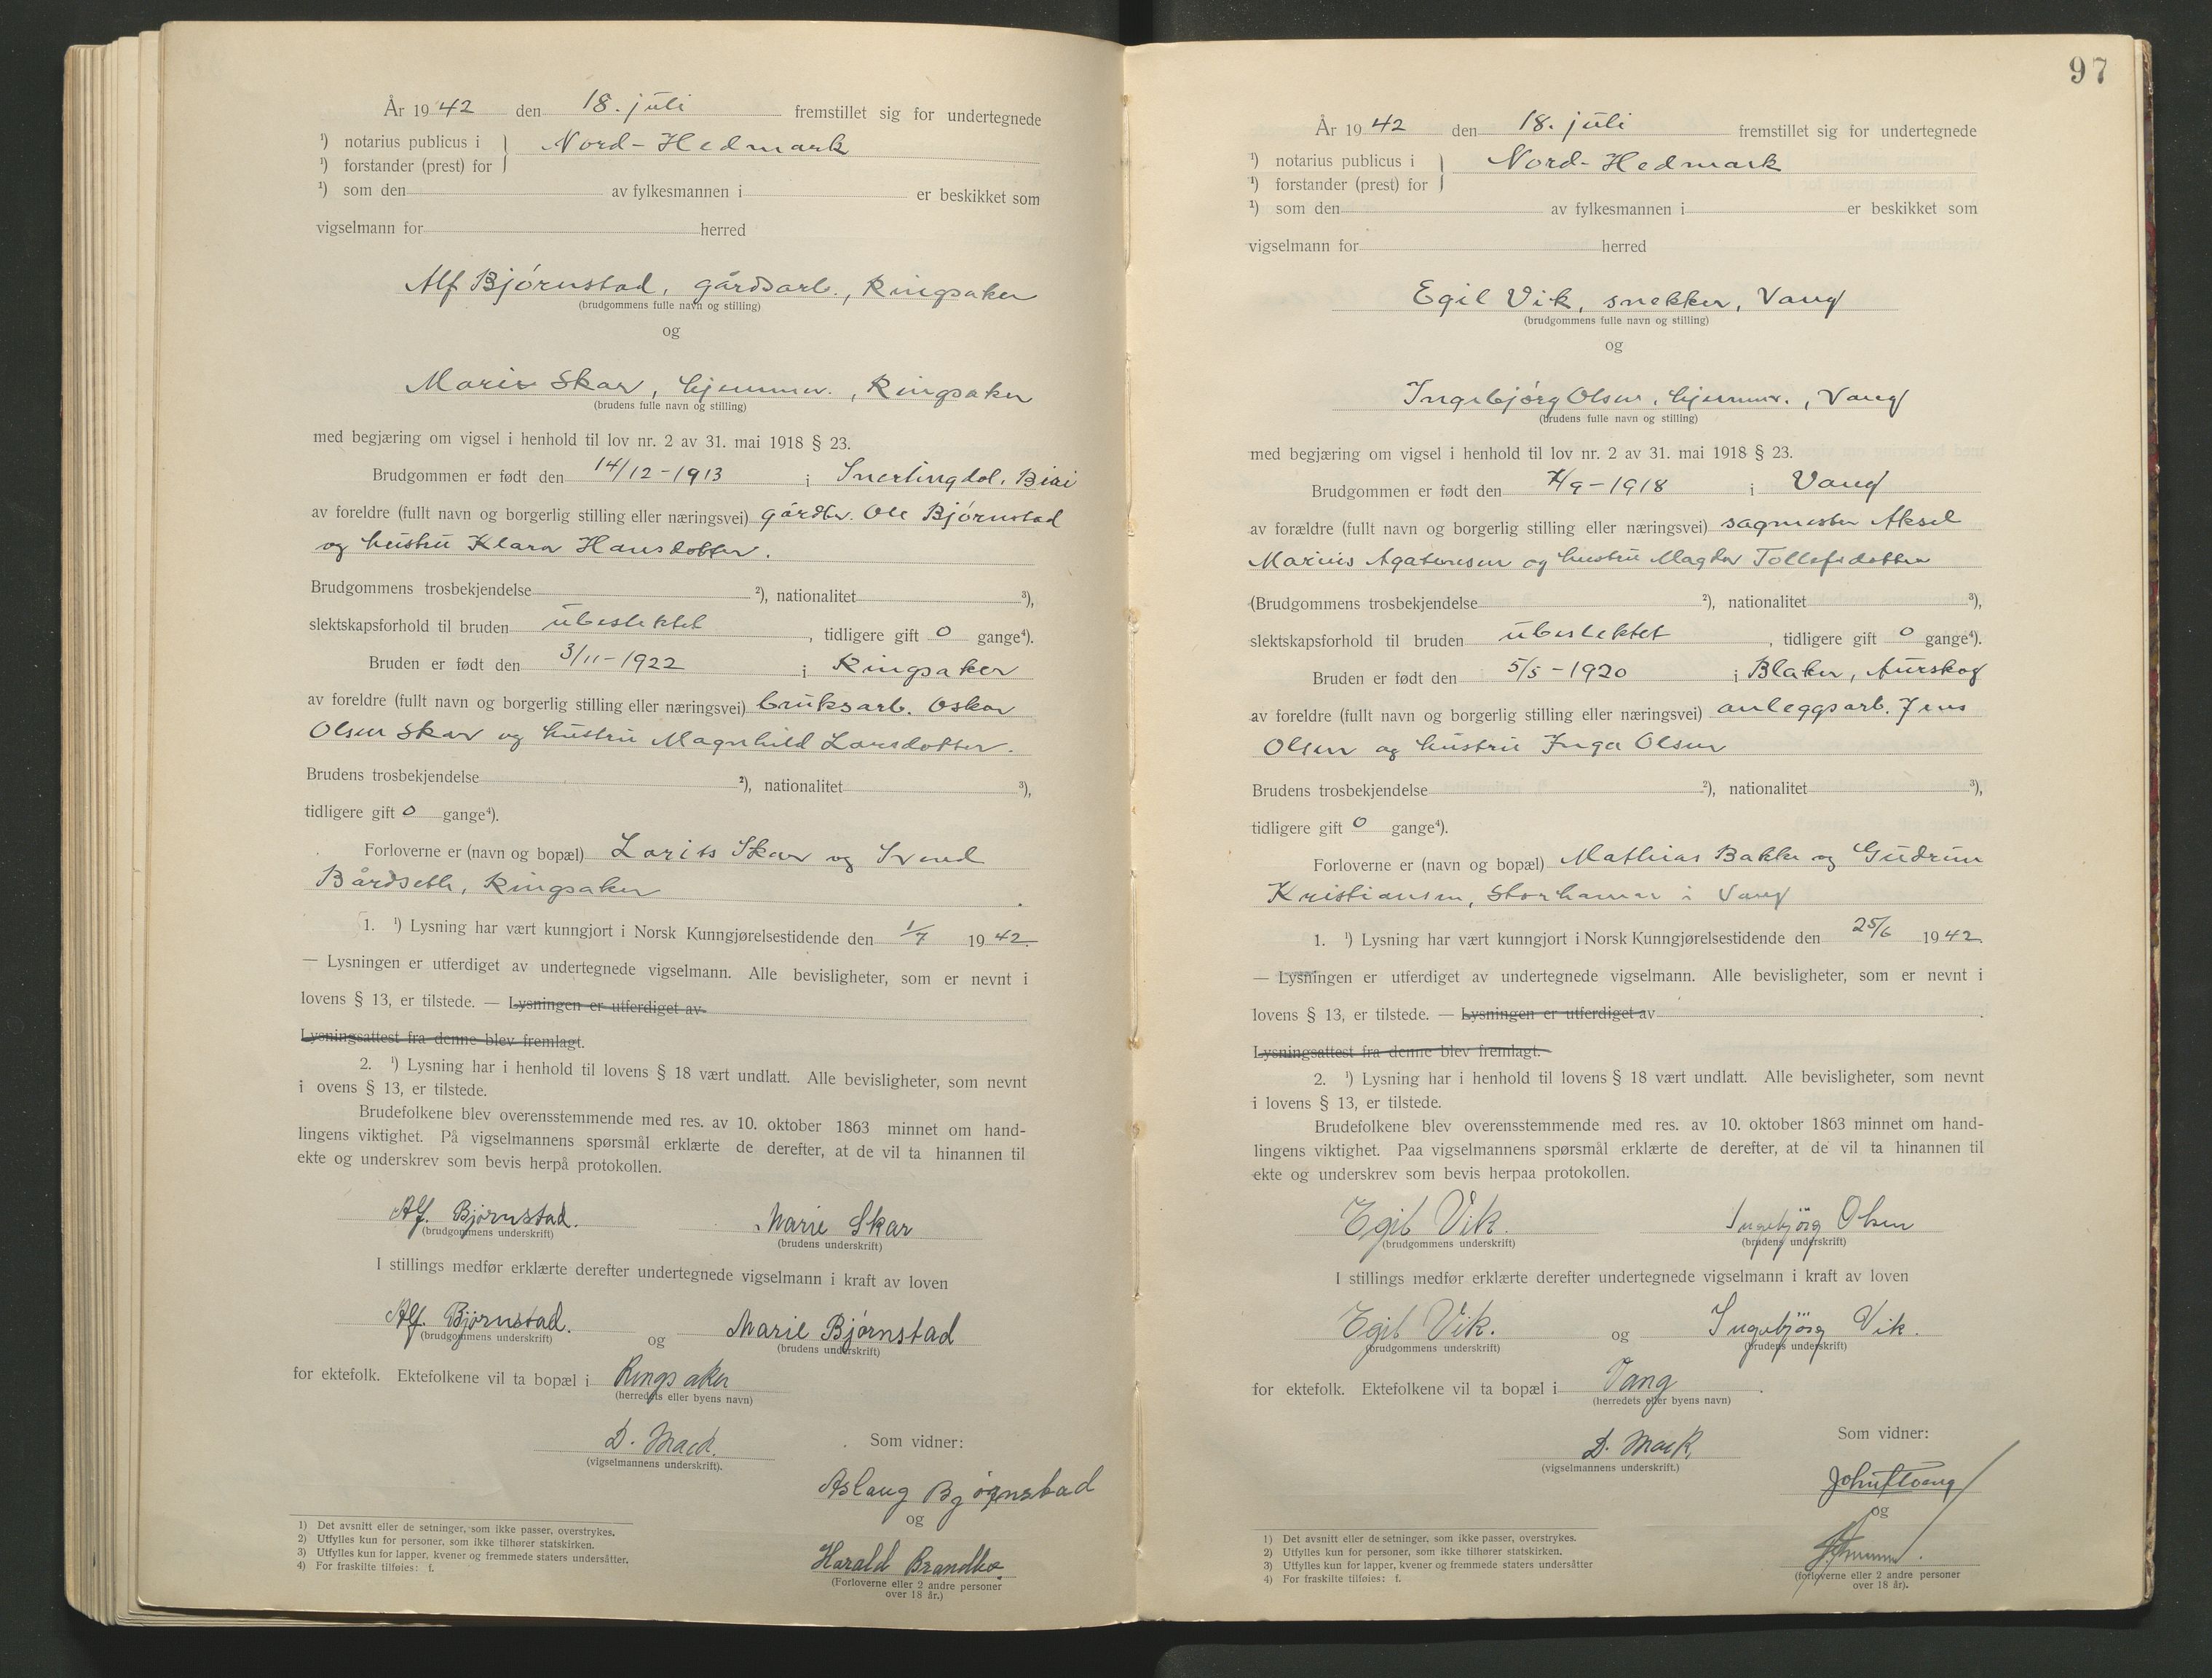 År 1942 den 18. juli fremstillet sig for undertegnede
¹) notarius publicus i } Nord-Hedmark
¹) forstander (prest) for
¹) som den av fylkesmannen i er beskikket som
vigselmann for herred
Alf Bjørnstad, gårdsarb., Ringsaker
(brudgommens fulle navn og stilling)
og
Marie Skar, hjemmev., Ringsaker
(brudens fulle navn og stilling)
med begjæring om vigsel i henhold til lov nr. 2 av 31. mai 1918 § 23.
Brudgommen er født den 14/12-1913 i Snertingdal, Biri
av foreldre (fullt navn og borgerlig stilling eller næringsvei) gårdbr. Ole Bjørnstad
og hustru Klara Hansdotter.
Brudgommens trosbekjendelse ²), nationalitet ³),
slektskapsforhold til bruden ubeslektet, tidligere gift 0 gange⁴).
Bruden er født den 3/11-1922 i Ringsaker
av foreldre (fullt navn og borgerlig stilling eller næringsvei) bruksarb. Oskar
Olsen Skar og hustru Magnhild Larsdotter.
Brudens trosbekjendelse ²), nationalitet ³),
tidligere gift 0 gange⁴).
Forloverne er (navn og bopæl) Skar og Svend
Bårdseth, Ringsaker.
1. ¹) Lysning har vært kunngjort i Norsk Kunngjørelsestidende den 1/7 1942.
— Lysningen er utferdiget av undertegnede vigselmann. Alle bevisligheter, som er nevnt i
lovens § 13, er tilstede. — Lysningen er utferdiget av
Lysningsattest fra denne blev fremlagt.
2. ¹) Lysning har i henhold til lovens § 18 vært undlatt. Alle bevisligheter, som nevnt
i ovens § 13, er tilstede.
Brudefolkene blev overensstemmende med res. av 10. oktober 1863 minnet om hand-
lingens viktighet. På vigselmannens spørsmål erklærte de derefter, at de vil ta hinannen til
ekte og underskrev som bevis herpå protokollen.
Alf. Bjørnstad. Marie Skar
(brudgommens underskrift) (brudens underskrift)
I stillings medfør erklærte derefter undertegnede vigselmann i kraft av loven
Alf. Bjørnstad. og Marie Bjørnstad
(brudgommens underskrift) (brudens underskrift)
for ektefolk. Ektefolkene vil ta bopæl i Ringsaker
(herredets eller byens navn)
D. Mack.
(vigselmannens underskrift).
Som vidner:
Aslaug Bjørnstad
og
Harald Brandbo.
(Forloverne eller 2 andre personer
over 18 år.)
1) Det avsnitt eller de setninger, som ikke passer, overstrykes.
2) Utfylles kun for personer, som ikke tilhører statskirken.
3) Utfylles kun for lapper, kvener og fremmede staters undersåtter.
4) For fraskilte tilføies: f.
97
År 1942 den 18. juli fremstillet sig for undertegnede
¹) notarius publicus i } Nord-Hedmark
¹) forstander (prest) for
¹) som den av fylkesmannen i er beskikket som
vigselmann for herred
Egil Vik, snekker, Vang
(brudgommens fulle navn og stilling)
og
Ingebjørg Olsen, hjemmev., Vang
(brudens fulle navn og stilling)
med begjæring om vigsel i henhold til lov nr. 2 av 31. mai 1918 § 23.
Brudgommen er født den 7/9-1918 i Vang
av forældre (fullt navn og borgerlig stilling eller næringsvei) sagmester Aksel
Marius Agatonsen og hustru Magda Tollefsdotter
(Brudgommens trosbekjendelse ²), nationalitet ³),
slektskapsforhold til bruden ubeslektet, tidligere gift 0 gange⁴).
Bruden er født den 5/5-1920 i Blaker, Aurskog
av foreldre (fullt navn og borgerlig stilling eller næringsvei) anleggsarb. Jens
Olsen og hustru Inga Olsen
Brudens trosbekjendelse ²), nationalitet ³),
tidligere gift 0 gange⁴).
Forloverne er (navn og bopæl) Mathias Bakke og Gudrun
Kristiansen, Storhamar i Vang
1. ¹) Lysning har vært kunngjort i Norsk Kunngjørelsestidende den 25/6 1942.
— Lysningen er utferdiget av undertegnede vigselmann. Alle bevisligheter, som er nevnt i
lovens § 13, er tilstede. — Lysningen er utferdiget av .
Lysningsattest fra denne blev fremlagt.
2. ¹) Lysning har i henhold til lovens § 18 vært undlatt. Alle bevisligheter, som nevnt
i lovens § 13, er tilstede.
Brudefolkene blev overensstemmende med res. av 10. oktober 1863 minnet om hand-
lingens viktighet. Paa vigselmannens spørsmål erklærte de derefter, at de vil ta hinannen til
ekte og underskrev som bevis herpaa protokollen.
Egil Vik. Ingebjörg Olsen
(brudgommens underskrift) (brudens underskrift)
I stillings medfør erklærte derefter undertegnede vigselmann i kraft av loven
Egil Vik. og Ingebjörg Vik.
(brudgommens underskrift) (brudens underskrift)
for ektefolk. Ektefolkene vil ta bopæl i Vang.
(herredets eller byens navn)
D. Mack
(vigselmannens underskrift.)
Som vidner:
og
(forloverne eller 2 andre personer
over 18 år).
1) Det avsnitt eller de setninger, som ikke passer, overstrykes.
2) Utfylles kun for personer, som ikke tilhører statskirken.
3) Utfylles kun for lapper, kvener og fremmede staters undersåtter
4) For fraskilte tilføies: f.